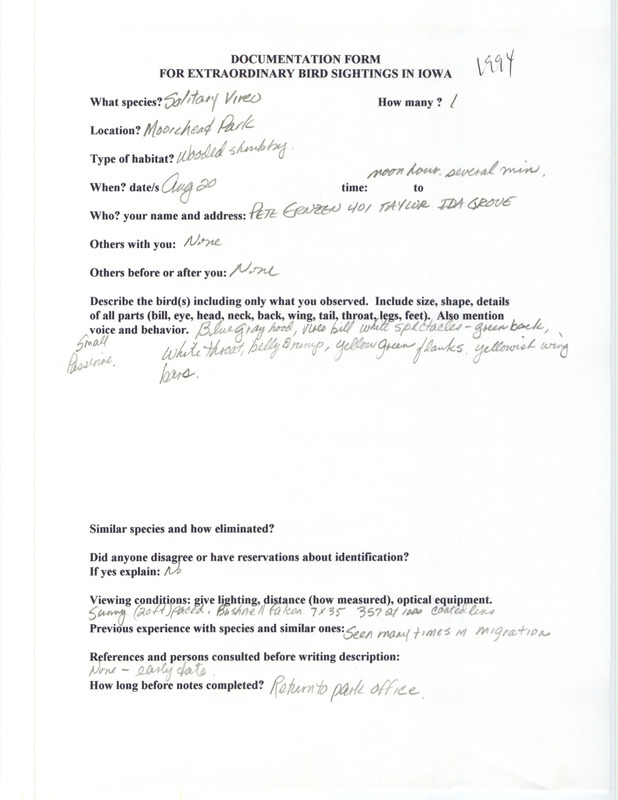 DOCUMENTATION FORM
FOR EXTRAORDINARY BIRD SIGHTINGS IN IOWA
1994
What species? Solitary Vireo How many ? 1
Location? Moorehead Park
Type of habitat? Wooded shrubby.
noon hour. several min.
When? date/s Aug 20 time: to
Who? your name and address: PETE ERNZEN 401 TAYLOR IDA GROVE
Others with you: None
Others before or after you: None
Describe the bird(s) including only what you observed. Include size, shape, details
of all parts (bill, eye, head, neck, back, wing, tail, throat, legs, feet). Also mention
voice and behavior. Blue gray hood, vireo bill white spectacles - green back,
Small Passerine.
White throat, belly & rump, yellow green flanks. yellowish wing
bars.
Similar species and how eliminated?
Did anyone disagree or have reservations about identification?
If yes explain: No
Viewing conditions: give lighting, distance (how measured), optical equipment.
Sunny (20ft) paced. Bushnell Falcon 7x35 357 at 1000 coated lens
Previous experience with species and similar ones: Seen many times in migration
References and persons consulted before writing description:
None - early date.
How long before notes completed? Return to park office.